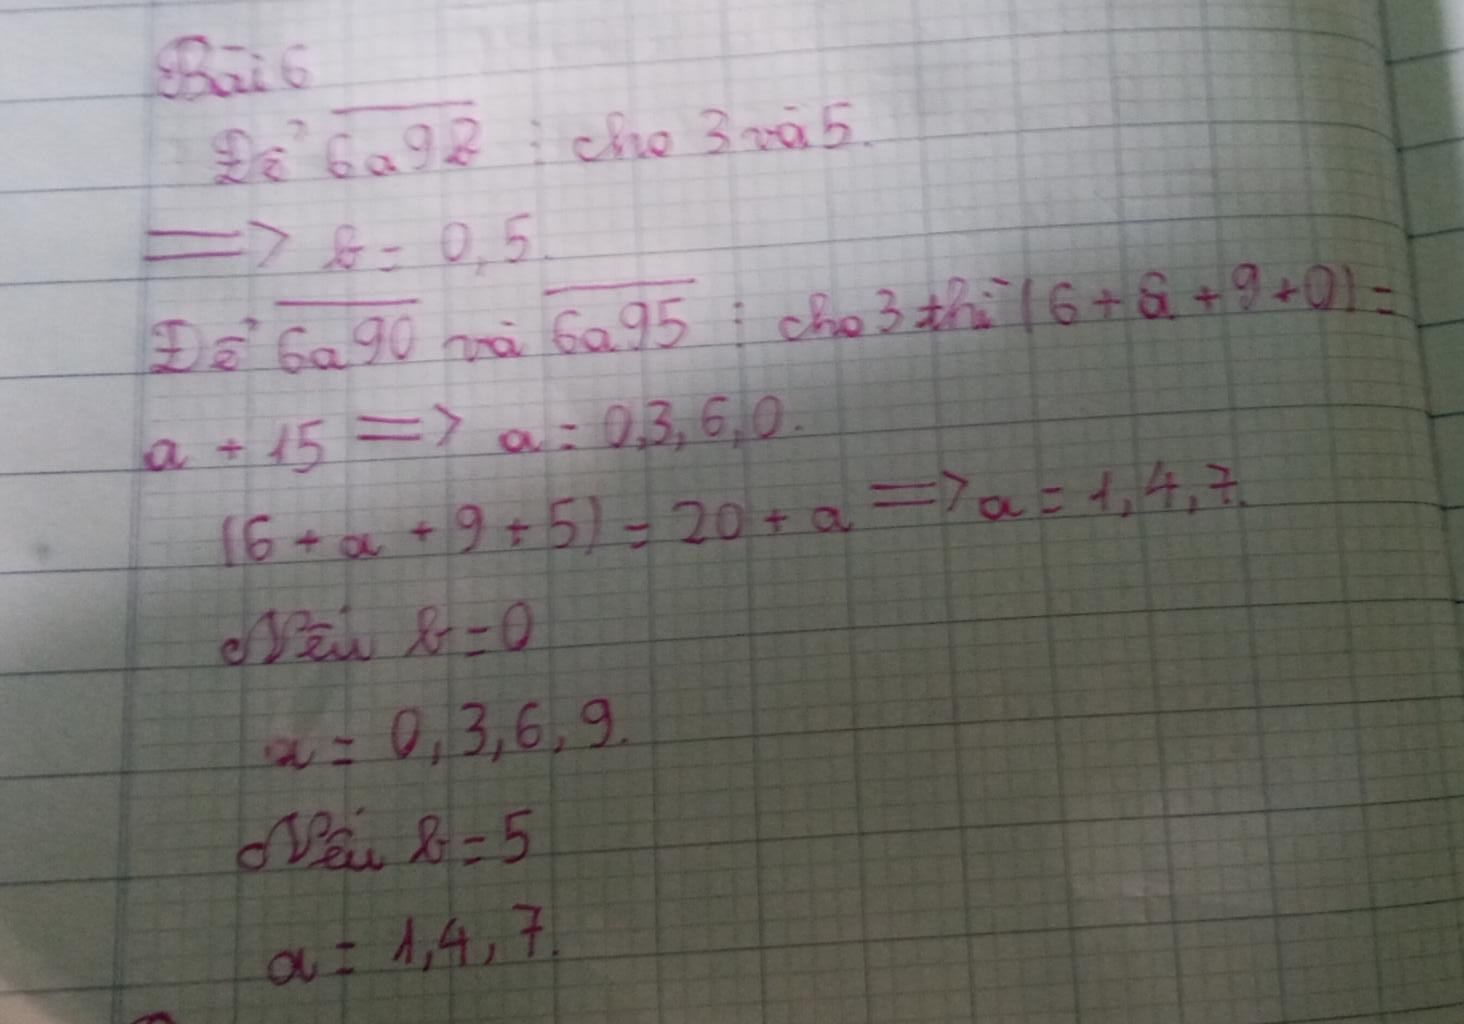 Bài 6
Để 6a9b ⋮ cho 3 và 5.
=> b = 0, 5.
Để 6a90 và 6a95 ⋮ cho 3 thì (6 + a + 9 + 0) =
a + 15 => a = 0,3, 6, 0.
(6 + a + 9 + 5) = 20 + a => a = 1, 4, 7.
Nếu b = 0
a = 0, 3, 6, 9.
Nếu b = 5
a = 1, 4, 7.